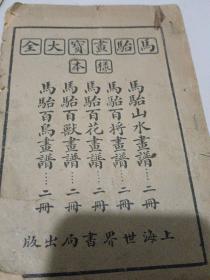 馬駘畫寶大全
樣本
馬駘山水畫譜……二冊
馬駘百將畫譜……二冊
馬駘百花畫譜……二冊
馬駘百獸畫譜……二冊
馬駘百鳥畫譜……二冊
上海世界書局出版